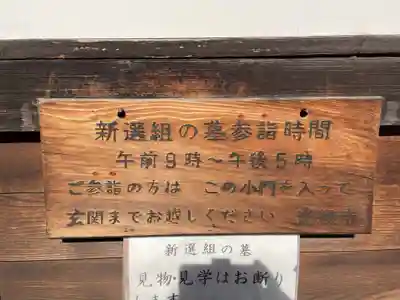 新選組の墓参詣時間
午前9時～午後5時
ご参詣の方は この小門を入って
玄関までお越しください
新選組の墓
見物・見学はお断り
します